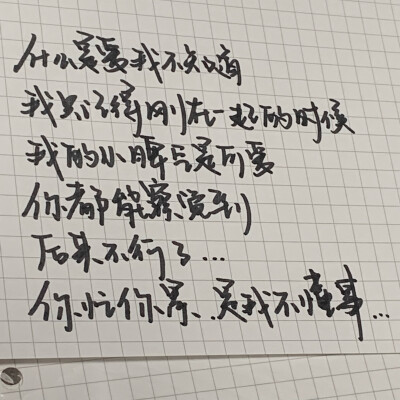 什么是爱我不知道
我只记得刚在一起的时候
我的小脾气是可爱
你都能察觉到
后来不行了...
你忙你累、是我不懂事...